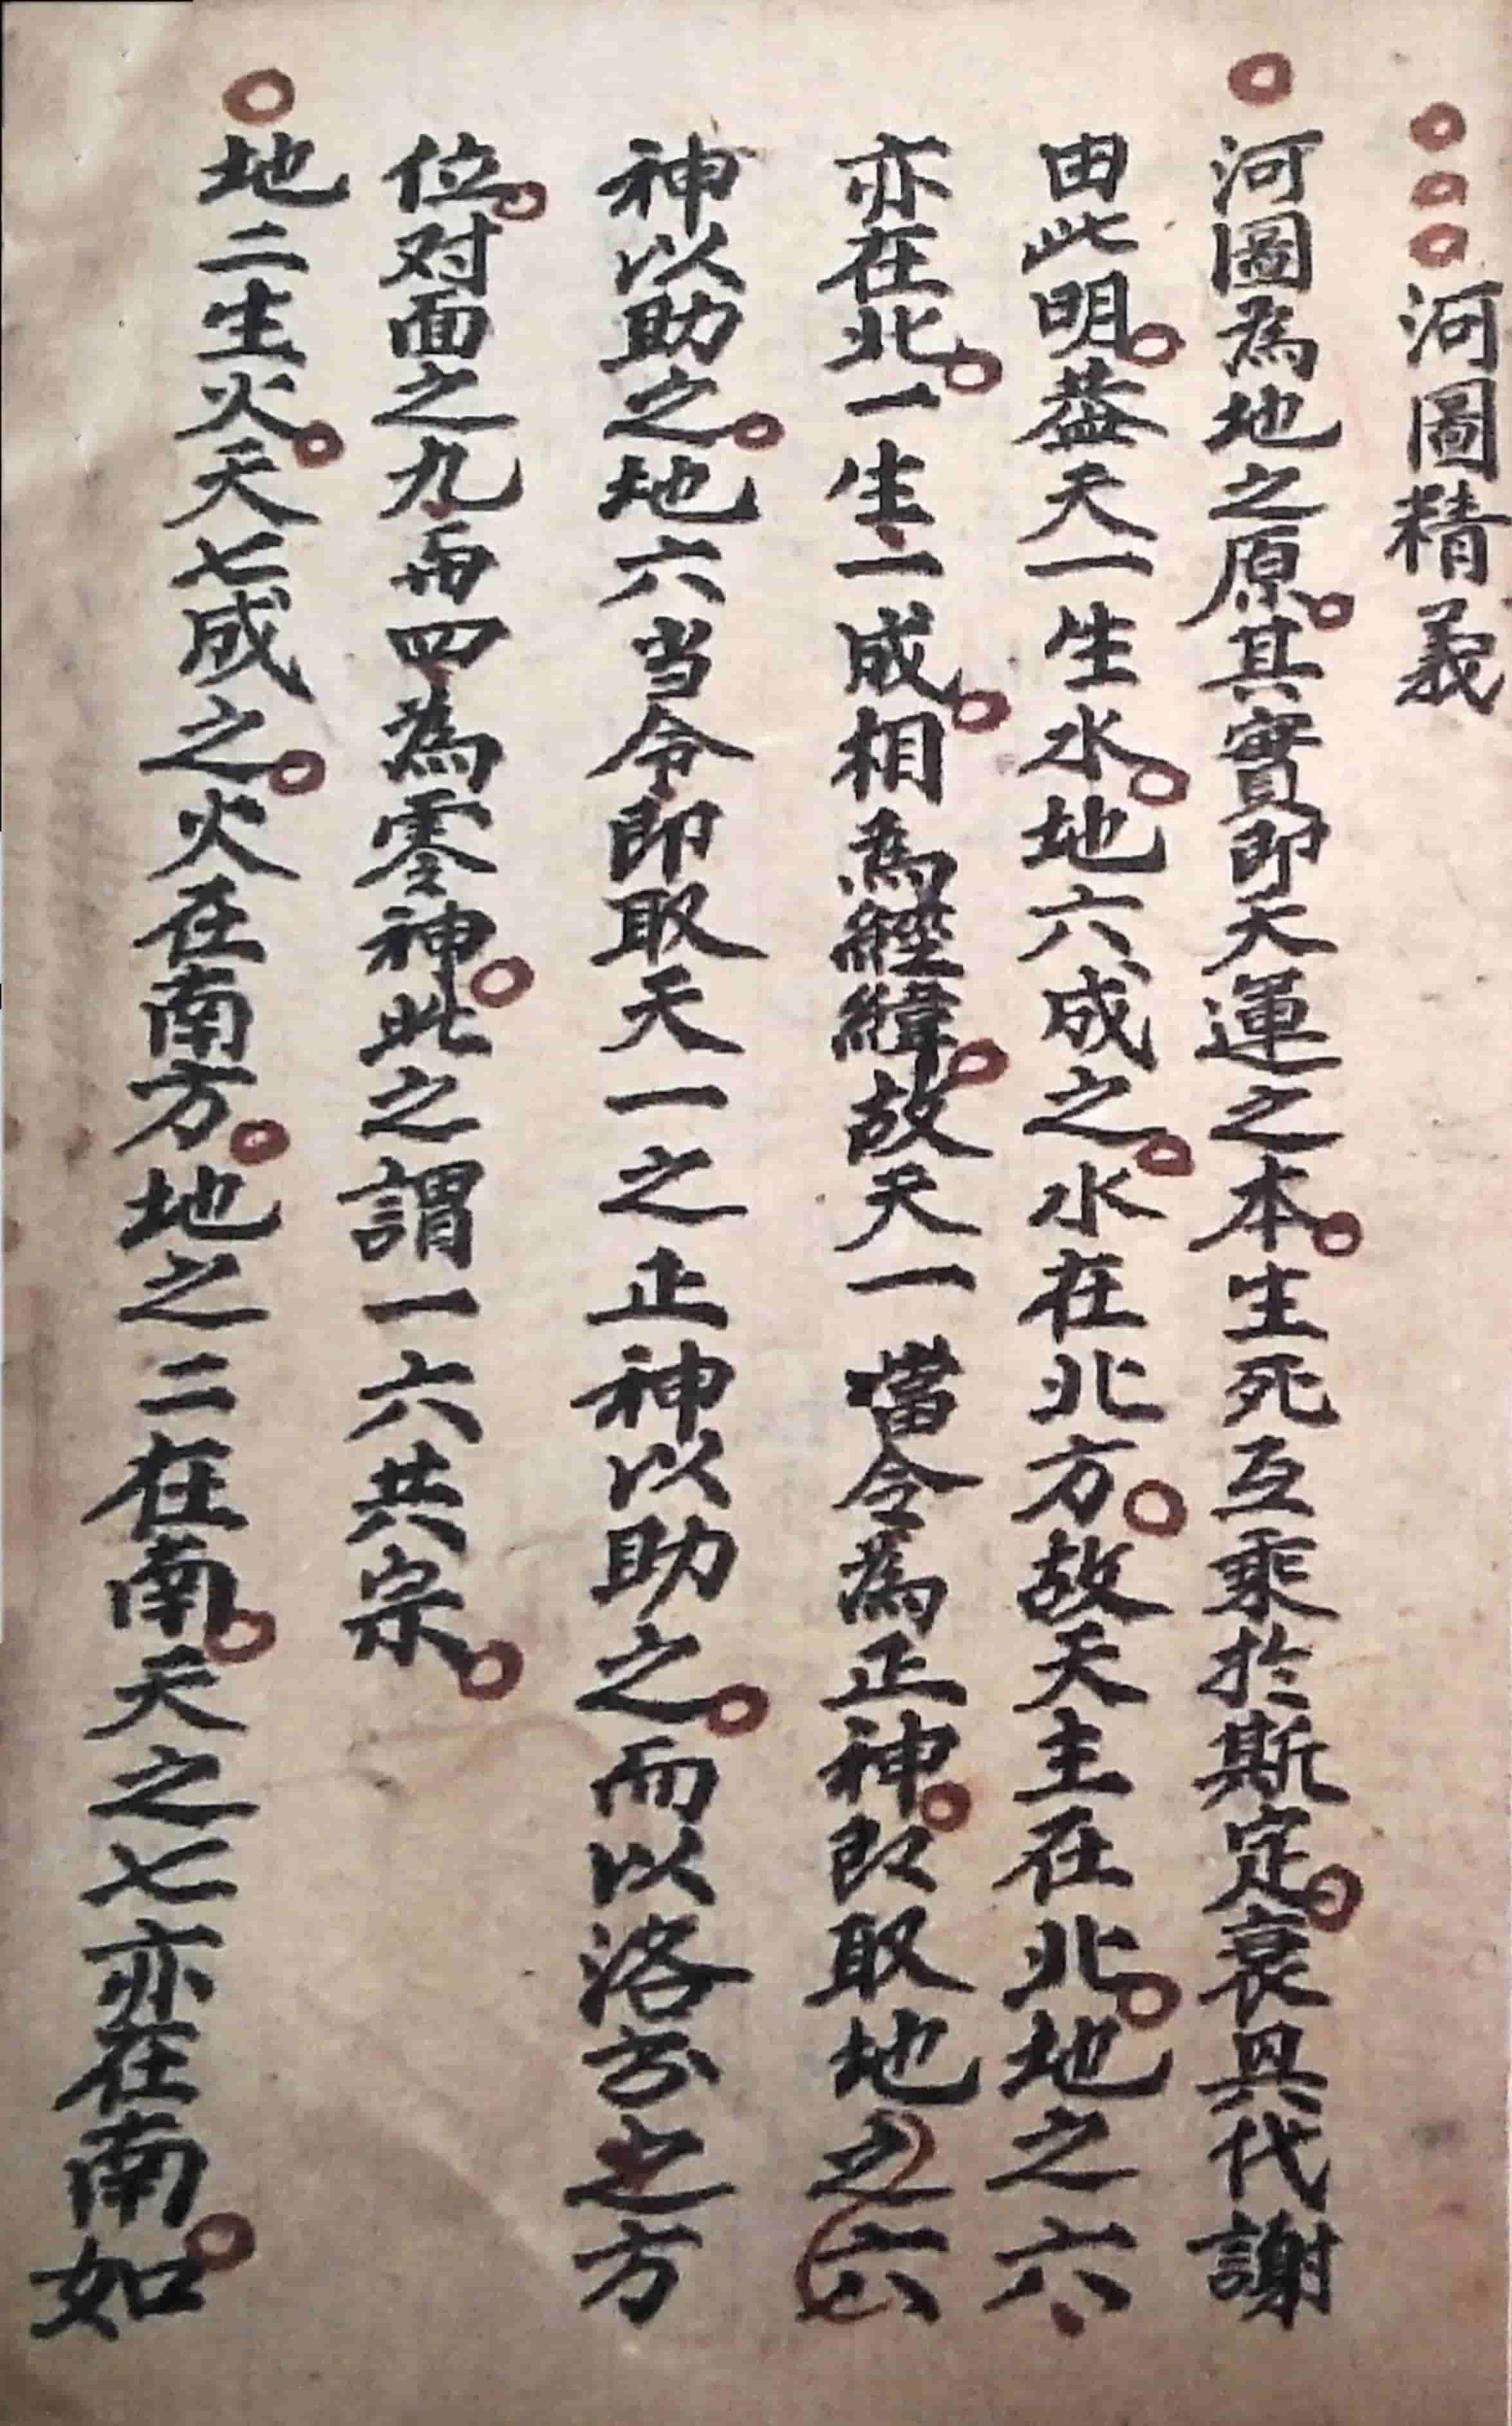 ○○○河圖精義
○河圖為地之原。其實即天運之本。生死互乘於斯定。衰具代謝
由此明。蓋天一生水。地六成之。水在北方。故天主在北。地之六
亦在北。一生一成。相為經緯。故天一當令為正神。即取地之六
神以助之。地六当令即取天一之正神以助之。而以洛之方
位。对面之九而四為零神。此之謂一六共宗。
○地二生火。天七成之。火在南方。地之二在南。天之七亦在南。如